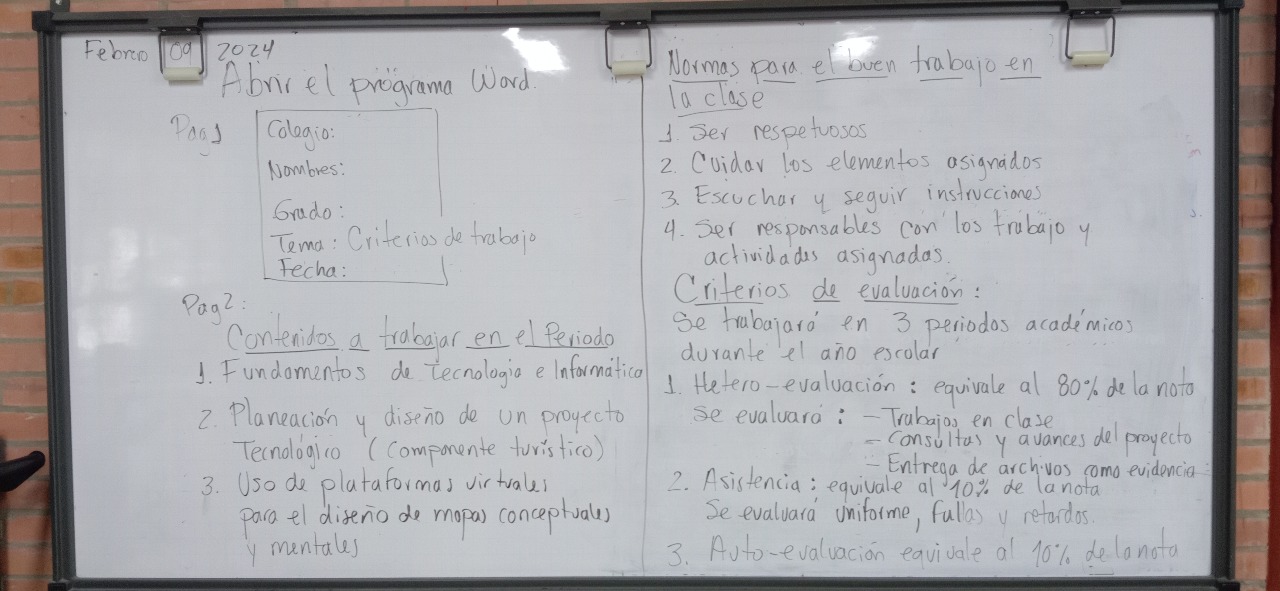 Febrero 09 2024
Abrir el programa Word.
Pag 1
Colegio:
Nombres:
Grado:
Tema: Criterios de trabajo
Fecha:
Pag 2:
Contenidos a trabajar en el Periodo
1. Fundamentos de Tecnologia e Informática
2. Planeación y diseño de un proyecto
Tecnológico (Componente turístico)
3. Uso de plataformas virtuales
para el diseño de mapas conceptuales
y mentales
Normas para el buen trabajo en
la clase
1. Ser respetuosos
2. Cuidar los elementos asignados
3. Escuchar y seguir instrucciones
4. Ser responsables con los trabajo y
actividades asignadas.
Criterios de evaluación:
Se trabajará en 3 periodos académicos
durante el año escolar
1. Hetero-evaluación: equivale al 80% de la nota
Se evaluará: - Trabajos en clase
- Consultas y avances del proyecto
- Entrega de archivos como evidencia
2. Asistencia: equivale al 10% de la nota
Se evaluará uniforme, fallas y retardos.
3. Auto-evaluación equivale al 10% de la nota